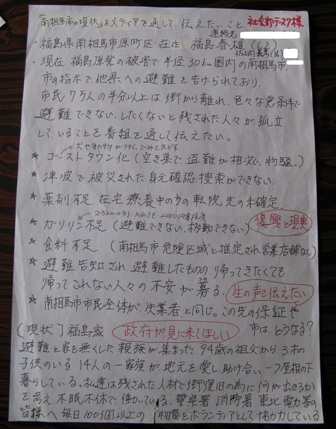 南相馬市の現状をメディアを通して、伝えたいこと
社会部デスク様
連絡先
福島県南相馬市原町区 在住 福島春雄
・現在 福島原発の被害で半径30km圏内の南相馬市
市の指示で他県への避難を告げられており、
市民7万人の半分以上は街から離れ、色々な悪条件で
避難できない、したくないと残された人々が孤立
していることを番組を通して伝えたい。
★ ゴーストタウン化(空き巣で盗難が相次ぐ、物騒)
★ 津波で被災された身元確認捜索ができない。
★ 薬剤不足 在宅療養中の方の転院先の未確定
★ ガソリン不足(避難できない、移動できない)
復興と現実
★ 食料不足(南相馬市危険区域と指定され営業店舗なし)
★ 避難告知され避難したものの、帰ってきたくても
帰ってこれない人々の不安が募る。
生の声を伝えたい
★ 南相馬市市民全体が失業者と同じ。この先の保証や
市はどうなる?
(現状)福島家
政府が見に来てほしい
避難と家を無くした親族が集まった94歳の祖父から3才の
子供のいる14人の一家族が地元を愛し助け合い一つ屋根の下
暮らしている。私達は残された人材で街復旧の為に何が出きるか
を考え不眠不休で働いている。警察署 消防署 東北電力等の
皆様へ毎日100個以上の
をボランティアとして協力している